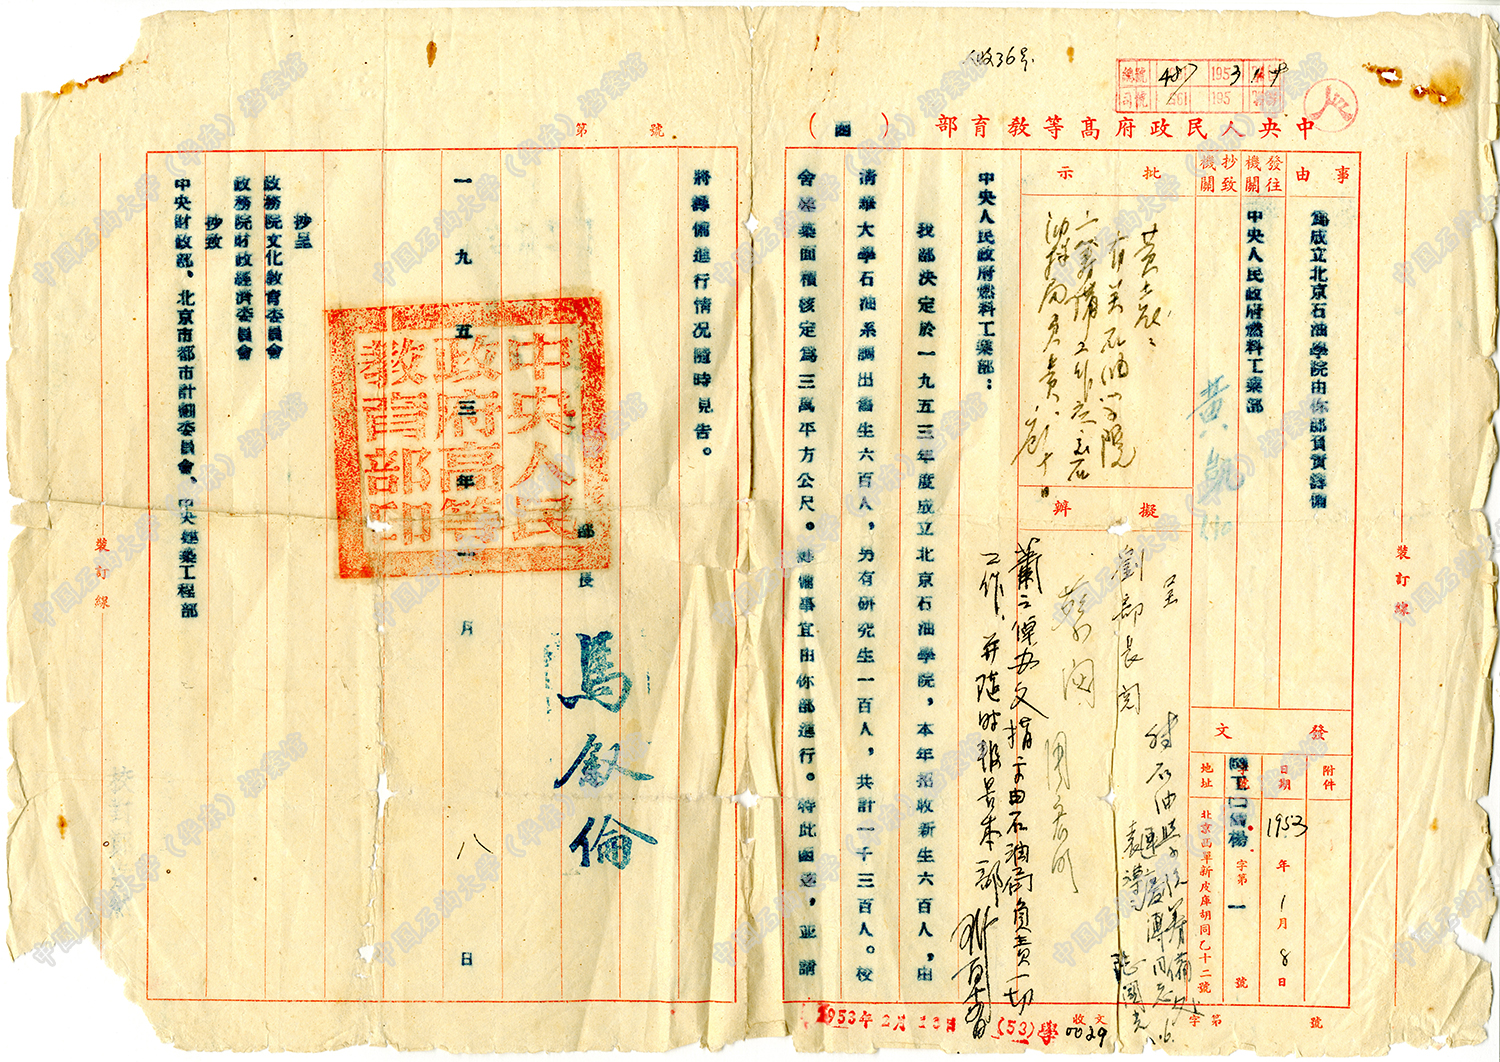 收36号
總號 487 1953 1 9
中央人民政府高等教育部（函）
第 號
事由
為成立北京石油學院由你部負責籌備
發往機關
抄致機關
中央人民政府燃料工業部
批示
有关石油学院
筹備工作应由石
油揔局負責
擬辦
呈
劉部長閱
發文
附件
日期 1953年1月8日
字號
字第一號
地址 北京西單新皮庫胡同乙十二號
中央人民政府燃料工業部：
我部決定於一九五三年度成立北京石油學院，本年招收新生六百人，由
清華大學石油系調出舊生六百人，另有研究生一百人，共計一千三百人。校
舍建築面積核定為三萬平方公尺。籌備事宜由你部進行。特此函達，並請
將籌備進行情況隨時見告。
办文指示由石油局負責一切
工作，并隨时報告本部
部長
馬敘倫
中央人民
政府高等
教育部印
一九五三年一月八日
抄呈
政務院文化教育委員會
政務院財政經濟委員會
抄致
中央財政部、北京市都市計劃委員會、中央建築工程部
裝訂線
裝訂線
1953年2月16日
(53)學
收文
0029
字第 號
中国石油大学（华东）档案馆